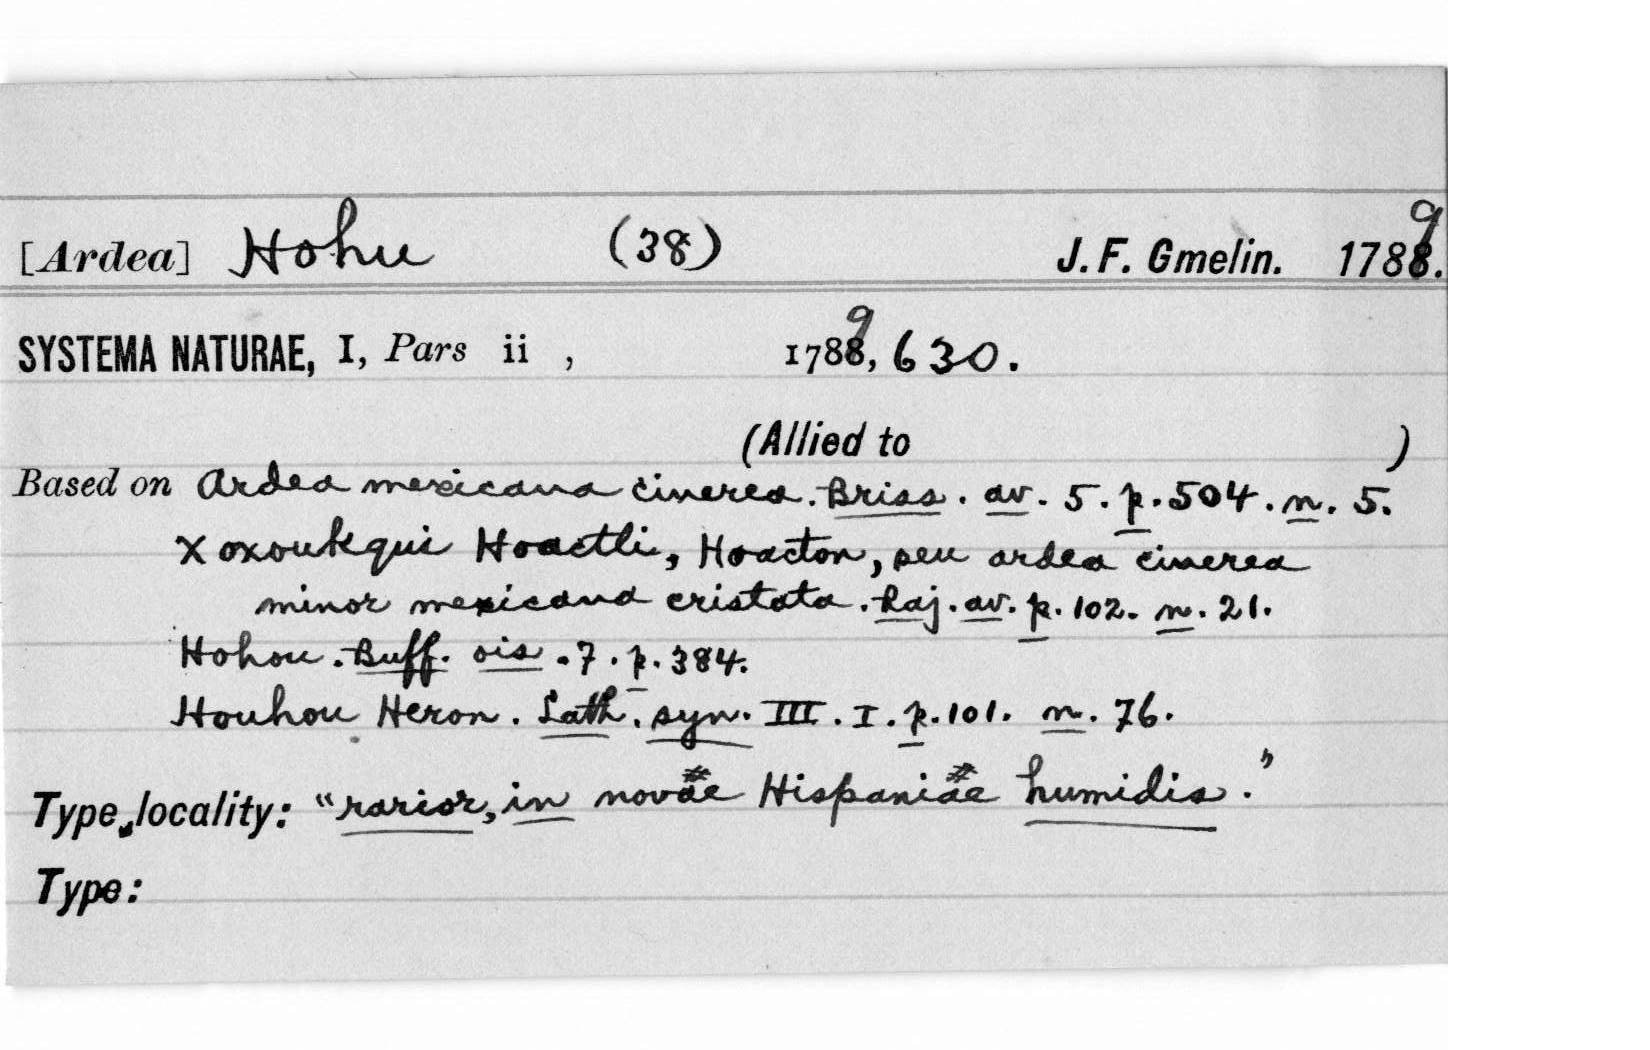 [Ardea] Hohu (38) J. F. Gmelin. 1789.
SYSTEMA NATURAE, I, Pars ii , 1789, 630.
(Allied to )
Based on Ardea mexicana cinerea. Briss. av. 5. p. 504. n. 5.
Xoxoukqui Hoactli, Hoacton, seu ardea cinerea
minor mexicana cristata. Raj. av. p. 102. n. 21.
Hohou. Buff. ois. 7. p. 384.
Houhou Heron. Lath. syn. III. I. p. 101. n. 76.
Type locality: "rarior, in novae Hispaniae humidis."
Type: